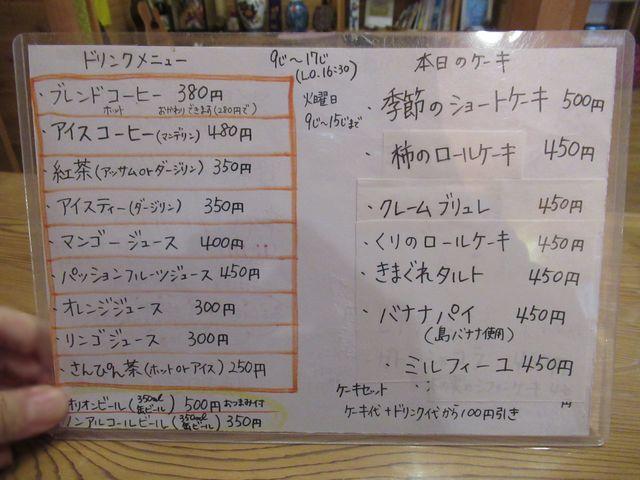 ドリンクメニュー
・ブレンドコーヒー 380円
ホット おかわりできます(280円で)
・アイスコーヒー(マンデリン) 480円
・紅茶(アッサムorダージリン) 350円
・アイスティー(ダージリン) 350円
・マンゴージュース 400円
・パッションフルーツジュース 450円
・オレンジジュース 300円
・リンゴジュース 300円
・さんぴん茶(ホットorアイス) 250円
オリオンビール(350ml缶ビール) 500円 おつまみ付
ノンアルコールビール(350ml缶ビール) 350円
9じ〜17じ
(L.O.16:30)
火曜日
9じ〜15じまで
本日のケーキ
・季節のショートケーキ 500円
・柿のロールケーキ 450円
・クレームブリュレ 450円
・くりのロールケーキ 450円
・きまぐれタルト 450円
・バナナパイ 450円
(島バナナ使用)
・ミルフィーユ 450円
ケーキセット
ケーキ代+ドリンク代から100円引き